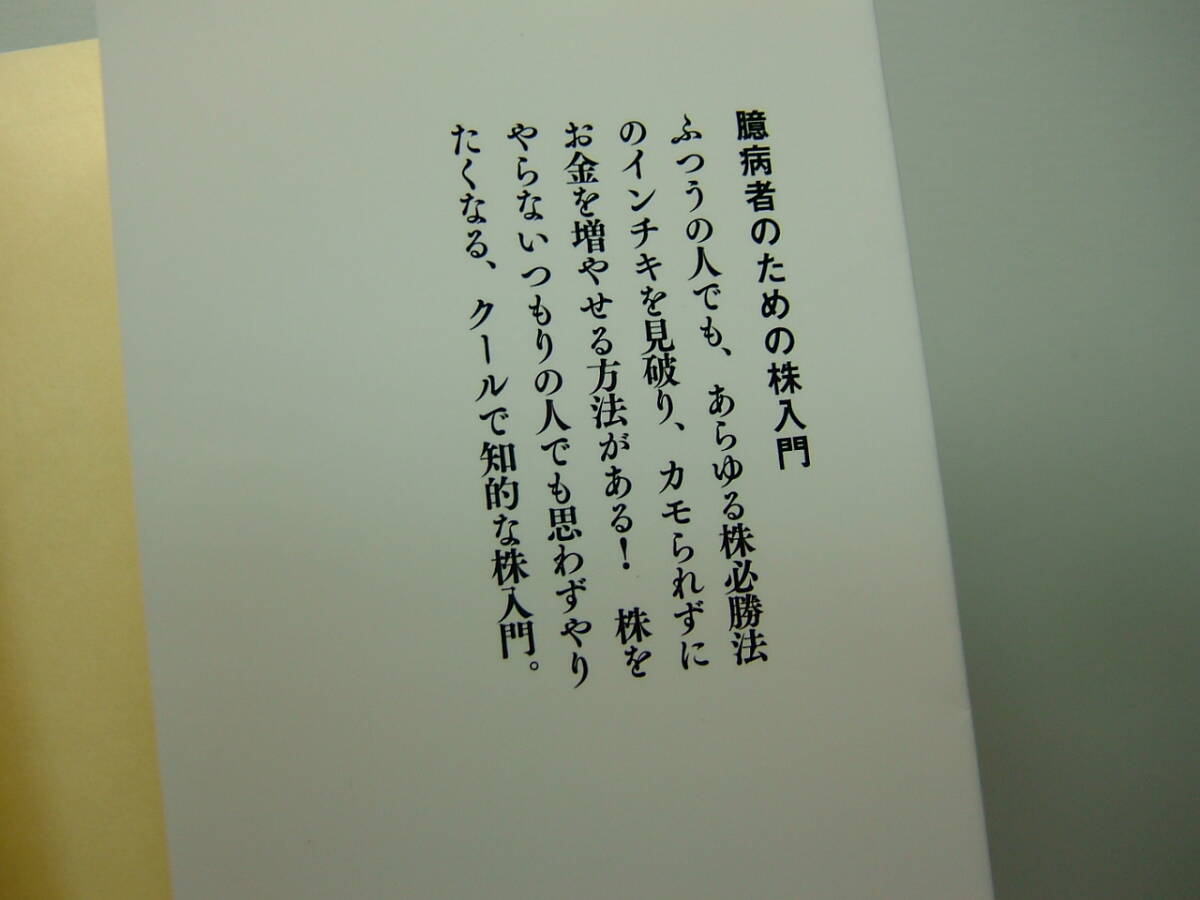 臆病者のための株入門
ふつうの人でも、あらゆる株必勝法
のインチキを見破り、カモられずに
お金を増やせる方法がある！　株を
やらないつもりの人でも思わずやり
たくなる、クールで知的な株入門。